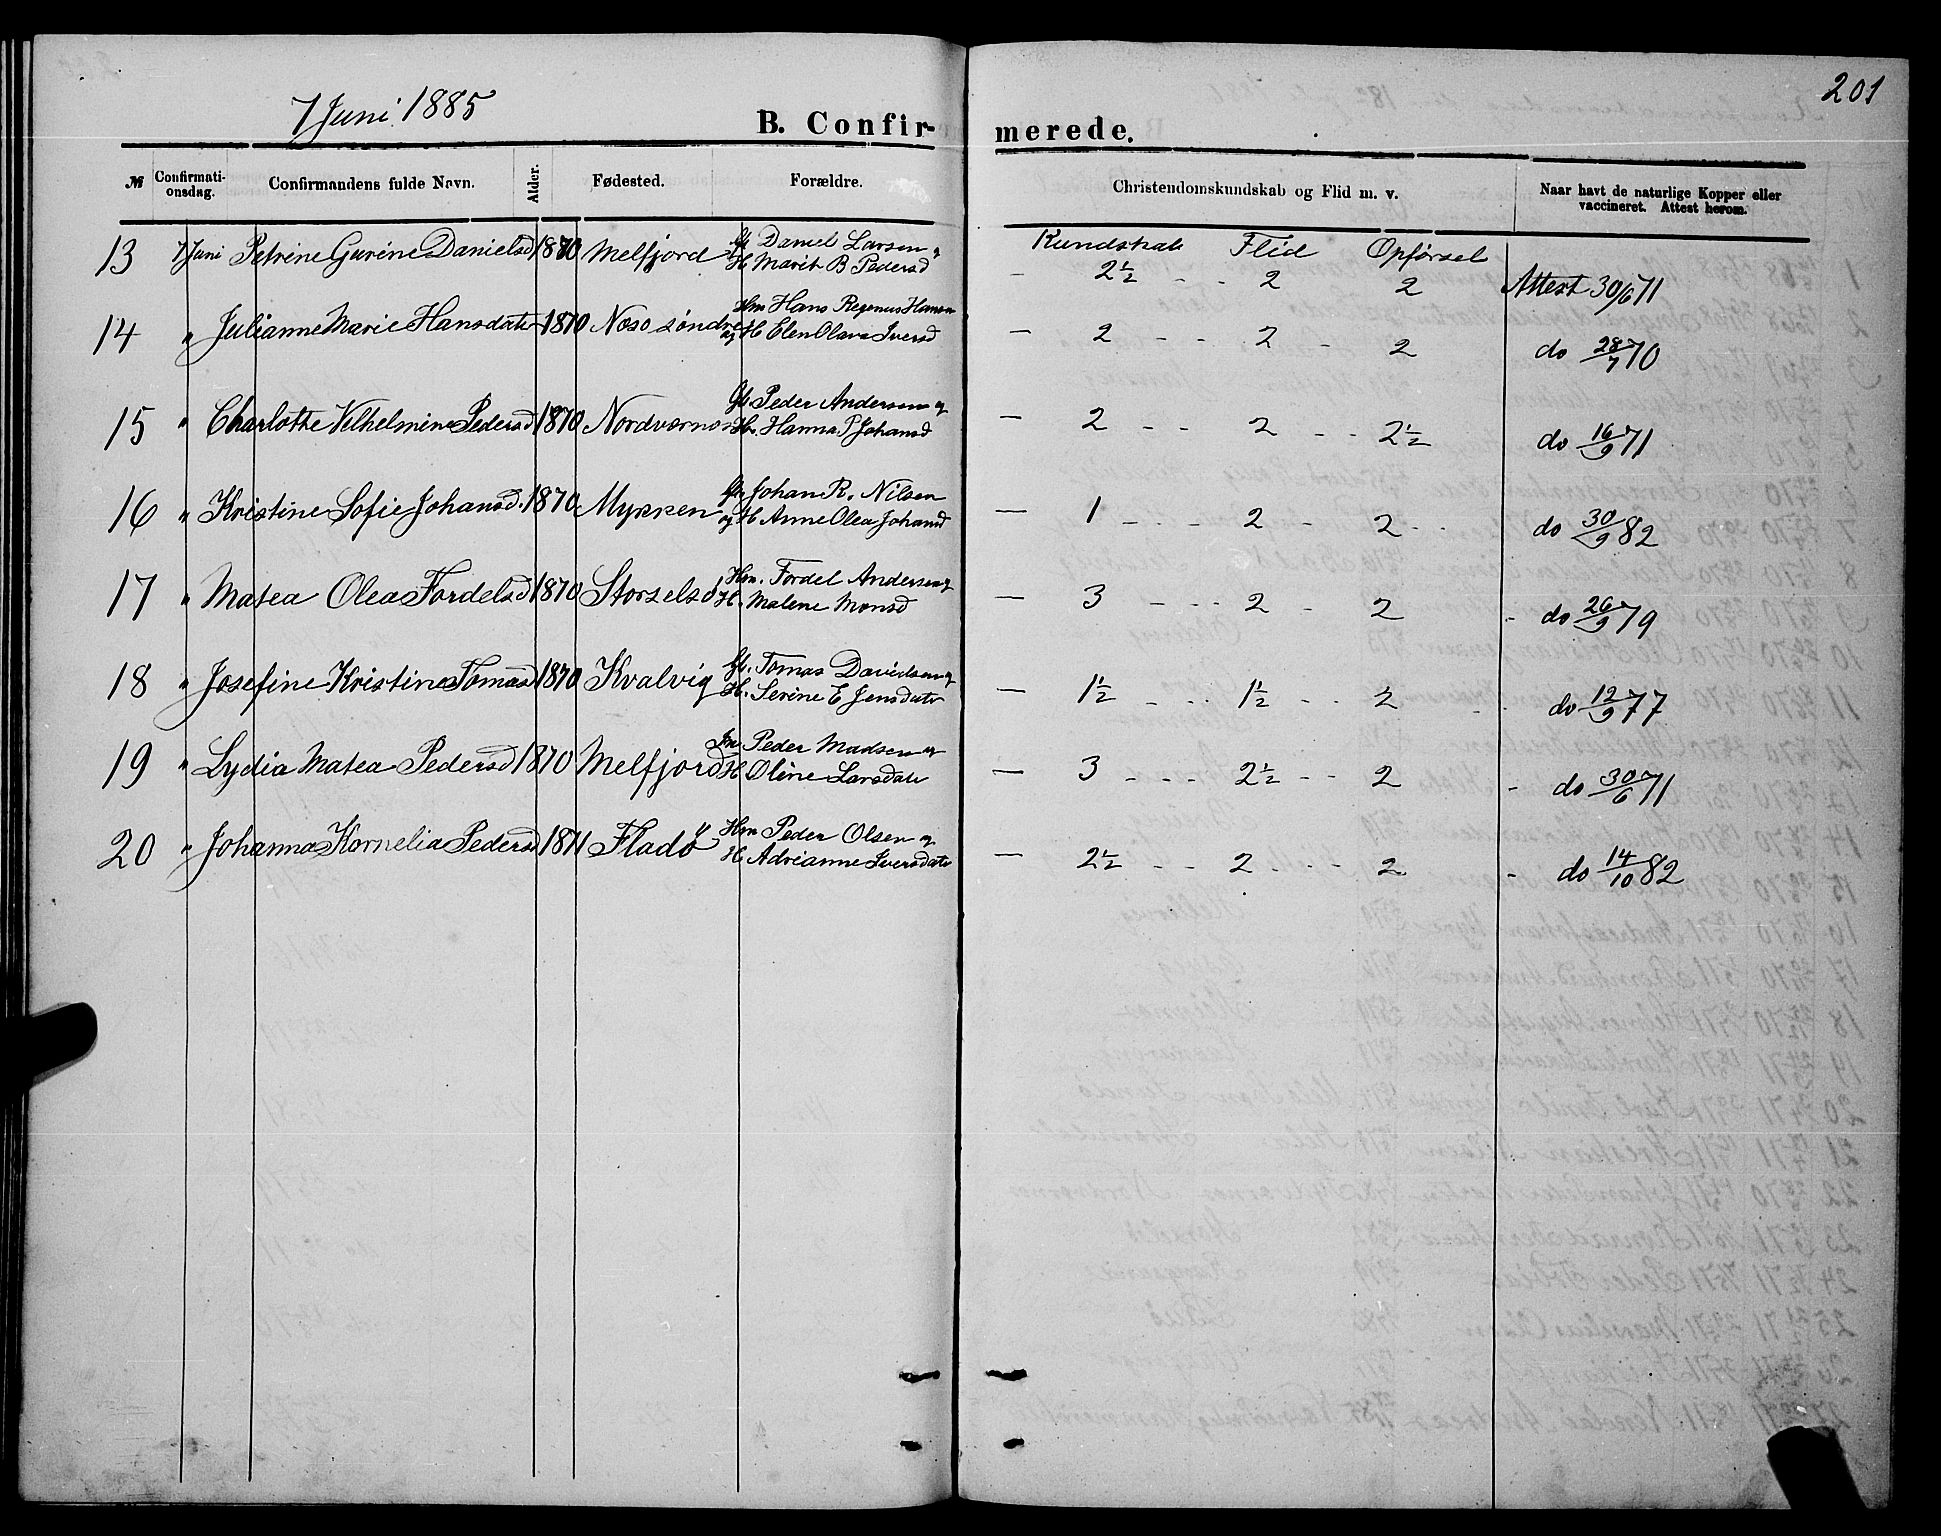 201
7 Juni 1885
B. Confirmerede.
№ Confirmationsdag. Confirmandens fulde Navn. Alder. Fødested. Forældre. Christendomskundskab og Flid m. v. Naar havt de naturlige Kopper eller vaccineret. Attest herom.
Kundskab Flid Opførsel
13 7 Juni Petrine Gurine Danielsd 1870 Melfjord G. Daniel Larsen og
H Marit B Pedersd — 2½ - - 2 2 Attest 30/6 71
14 " Julianne Marie Hansdatr 1870 Nesø søndre Hm Hans Regenus Hansen
og H Elen Olava Iversd — 2 - - 2 - 2 do 28/7 70
15 " Charlotte Vilhelmine Pedersd 1870 Nordværnes G. Peder Andersen og
H. Hanna P Johansd — 2 - - 2 - - 2½ do 16/9 71
16 " Kristine Sofie Johansd. 1870 Mykken Johan R. Nilsen
og H Anne Olea Johansd — 1 - - - 2 - 2 - - do 30/9 82
17 " Matea Olea Fordelsd 1870 Storselsø Hm. Fordel Andersen og
H. Malene Monsd — 3 - - - 2 - 2 - do 26/9 79
18 " Josefine Kristine Tomasd 1870 Kvalvig G. Tomas Davidsen og
H. Serine E Jensdatr — 1½ - - - 1½ - - 2 - - do 12/9 77
19 " Lydia Matea Pedersd 1870 Melfjord Peder Madsen og
H Oline Larsdatr — 3 - - - 2½ - - 2 - do 30/6 71
20 " Johanna Kornelia Pedersd 1871 Fladö Hm Peder Olsen og
H Adrianne Iversdatr — 2½ - - 2 - - - 2 - do 14/10 82